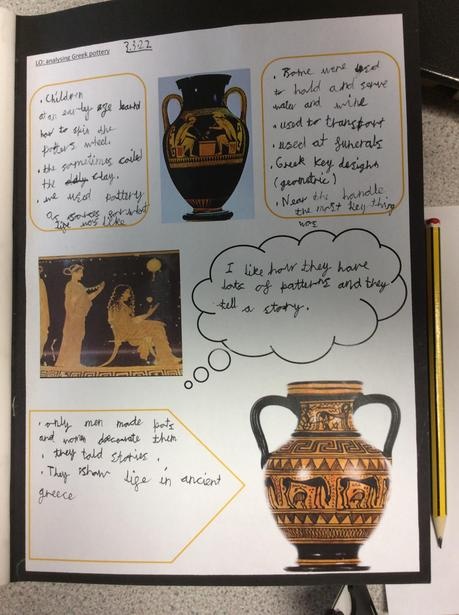 LO: analysing Greek pottery
3.3.22
• Children
at an early age learnt
how to spin the
potters wheel.
• the sometimes coiled
the clay.
• we used pottery
as sources
life was like
• Some were used
to hold and serve
water and wine
• used to transport
• used at funerals
• Greek key designs
(geometric)
• Near the handle
the most key thing
was
I like how they have
lots of patterns and they
tell a story.
• only men made pots
and women decorate them
• they told stories.
• They show life in ancient
greece